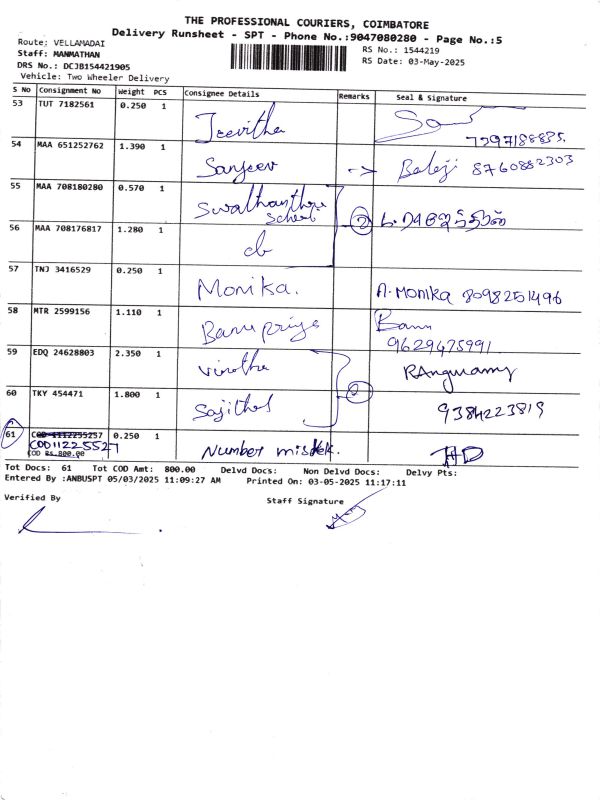 THE PROFESSIONAL COURIERS, COIMBATORE
Delivery Runsheet - SPT - Phone No.:9047080280 - Page No.:5
Route: VELLAMADAI
Staff: MANMATHAN
DRS No.: DCJB154421905
Vehicle: Two Wheeler Delivery
RS No.: 1544219
RS Date: 03-May-2025
S No Consignment No Weight PCS Consignee Details Remarks Seal & Signature
53 TUT 7182561 0.250 1 Jeevitha 7297188835.
54 MAA 651252762 1.390 1 Sanjeev -> Balaji 8760882303
55 MAA 708180280 0.570 1 School 2
56 MAA 708176817 1.280 1 do
57 TNJ 3416529 0.250 1 Monika. A. Monika 8098251496
58 MTR 2599156 1.110 1 Banupriya Banu
9629475991
59 EDQ 24628803 2.350 1 Vinotha 2
60 TKY 454471 1.800 1 9384223819
61 COD 1112255257 0.250 1 Number mistek. HD
COD11225527
COD Rs.800.00
Tot Docs: 61 Tot COD Amt: 800.00 Delvd Docs: Non Delvd Docs: Delvy Pts:
Entered By :ANBUSPT 05/03/2025 11:09:27 AM Printed On: 03-05-2025 11:17:11
Verified By Staff Signature